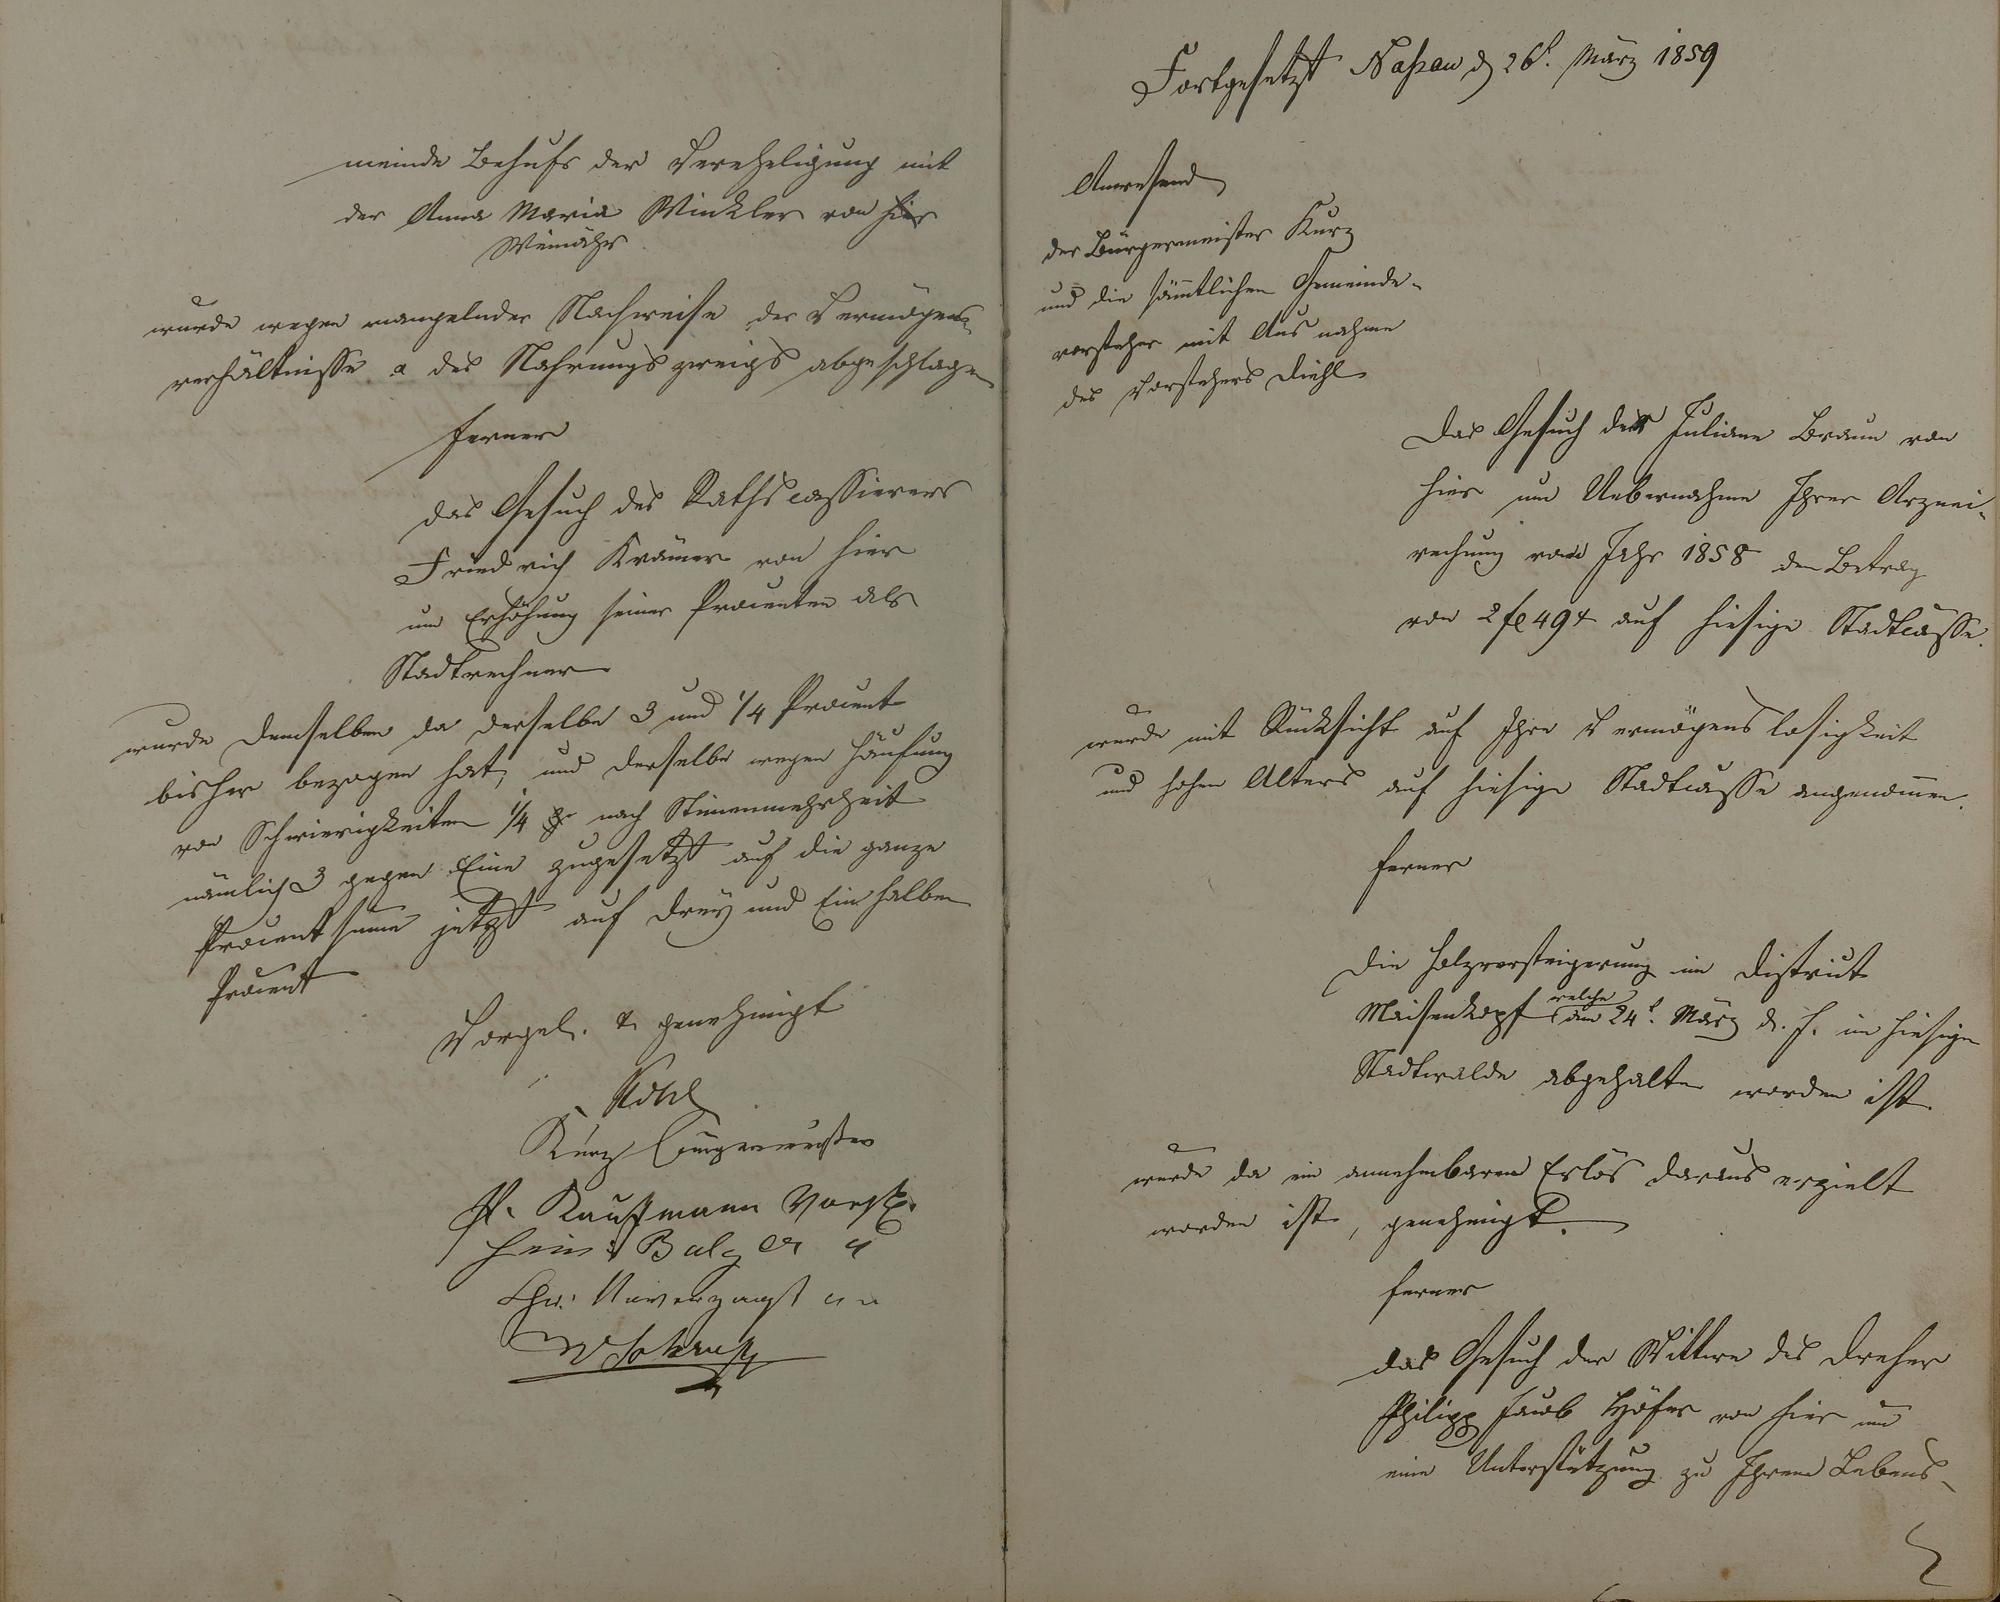 meinde Behufs der Verehelichung mit
der Anna Maria Winkler von hier
Weinähr
wurde wegen mangelnder Nachweise der Vermögens-
verhältnisse u des Nahrungszweigs abgeschlagen
ferner
das Gesuch des Rathscassierers
Friedrich Krämer von hier
um Erhöhung seiner Procenten als
Stadtrechner
wurde demselben da derselbe 3 und 1/4 Procent
bisher bezogen hat, und derselbe wegen Häufung
von Schwierigkeiten 1/4 pr nach Stimenmehrheit
nämlich 3 gegen Eine zugesetzt auf die ganze
Procentsume jetzt auf drey und Ein halben
Procent
Vorgel. u genehmigt
Kurz Bürgermeister
P. Kauffmann Vorst.
Heinr: Balzer "
Chr: Unverzagt " "
Fortgesetzt Naßau d 26t. März 1859
Anwesend
der Bürgermeister Kurz
und die sämtlichen Gemeinde-
vorsteher mit Ausnahme
des Vorstehers Diehl
Das Gesuch der Juliane Braun von
hier um Uebernahme Ihrer Arznei-
rechung vom Jahr 1858 den Betrag
von 2 fl 49 x auf hiesige Stadtcasse.
wurde mit Rücksicht auf Ihre Vermögenslosigkeit
und hohen Alters auf hiesige Stadtcasse angenomen.
ferner
Die Holzversteigerung im District
Maisenkopf welche am 24t. März d. J. im hiesigen
Stadtwalde abgehalten worden ist.
wurde da ein annehmbaren Erlös daraus erzielt
worden ist, genehmigt.
ferner
das Gesuch der Wittwe des Dreher
Philipp Jacob Höfer von hier um
eine Unterstützung zu Ihrem Lebens-